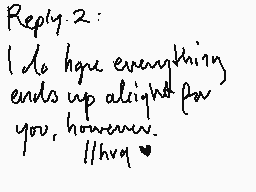 Reply 2:
I do hope everything
ends up alright for
you, however.
//hug ♥